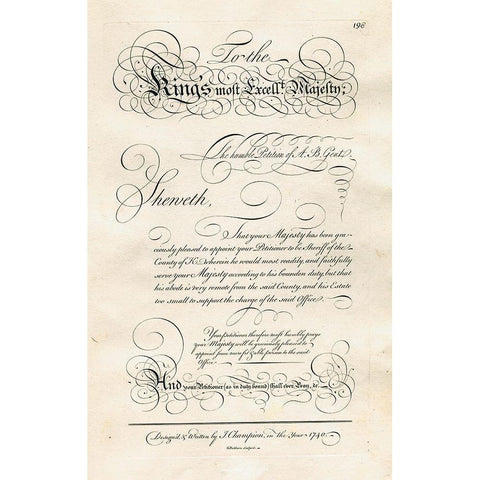 198
To the
King's most Excell.t Majesty;
The humble Petition of A. B. Gent.
Sheweth,
That your Majesty has been gra-
ciously pleased to appoint your Petitioner to be Sheriff of the
County of K. wherein he would most readily, and faithfully
serve your Majesty according to his bounden duty, but that
his abode is very remote from the said County, and his Estate
too small to support the charge of the said Office.
Your petitioner therefore most humbly prays
your Majesty will be graciously pleased to
appoint some more fit & able person to the said
Office.
And your Petitioner (as in duty bound) shall ever Pray, &c.
Design'd & Written by J. Champion, in the Year 1740.
G. Bickham sculpsit.